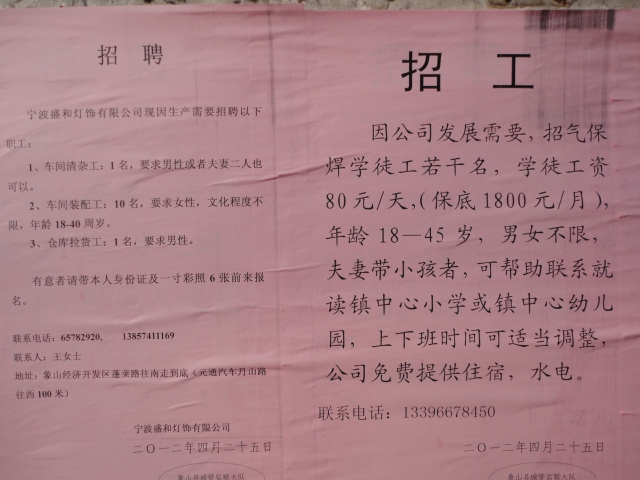 招 聘
宁波盛和灯饰有限公司现因生产需要招聘以下
职工：
1、车间清杂工：1名，要求男性或者夫妻二人也
可以。
2、车间装配工：10名，要求女性，文化程度不
限，年龄 18-40 周岁。
3、仓库拉货工：1名，要求男性。
有意者请带本人身份证及一寸彩照 6 张前来报
名。
联系电话：65782920， 13857411169
联系人：王女士
地址：象山经济开发区蓬莱路往南走到底（元通汽车丹山路
往西 100 米）
宁波盛和灯饰有限公司
二〇一二年四月二十五日
象山县城管监察大队
招 工
因公司发展需要，招气保
焊学徒工若干名，学徒工资
80元/天，(保底1800元/月)，
年龄18—45岁，男女不限，
夫妻带小孩者，可帮助联系就
读镇中心小学或镇中心幼儿
园，上下班时间可适当调整，
公司免费提供住宿，水电。
联系电话：13396678450
二〇一二年四月二十五日
象山县城管监察大队